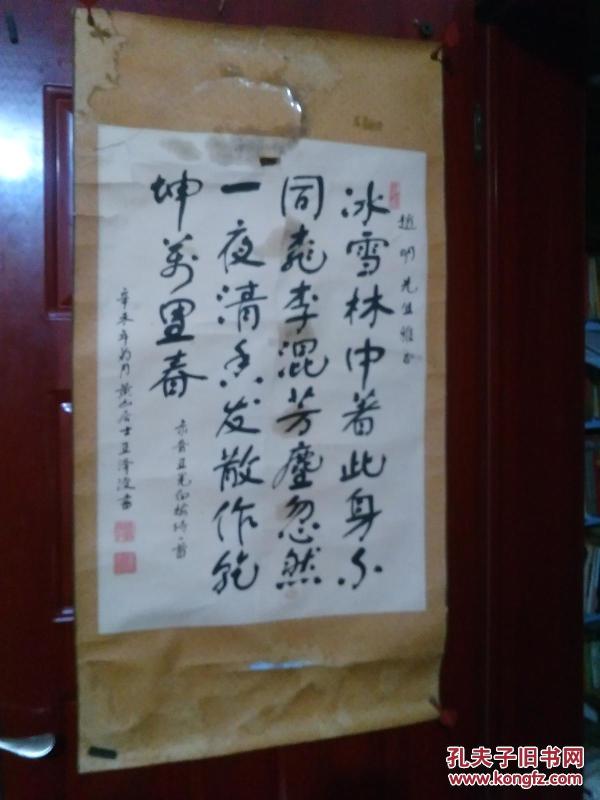 趙明先生雅正
冰雪林中著此身不
同桃李混芳塵忽然
一夜清香发散作乾
坤萬里春
王冕白梅詩一首
辛未年
黄山居士王澤波書
孔夫子旧书网
www.kongfz.com